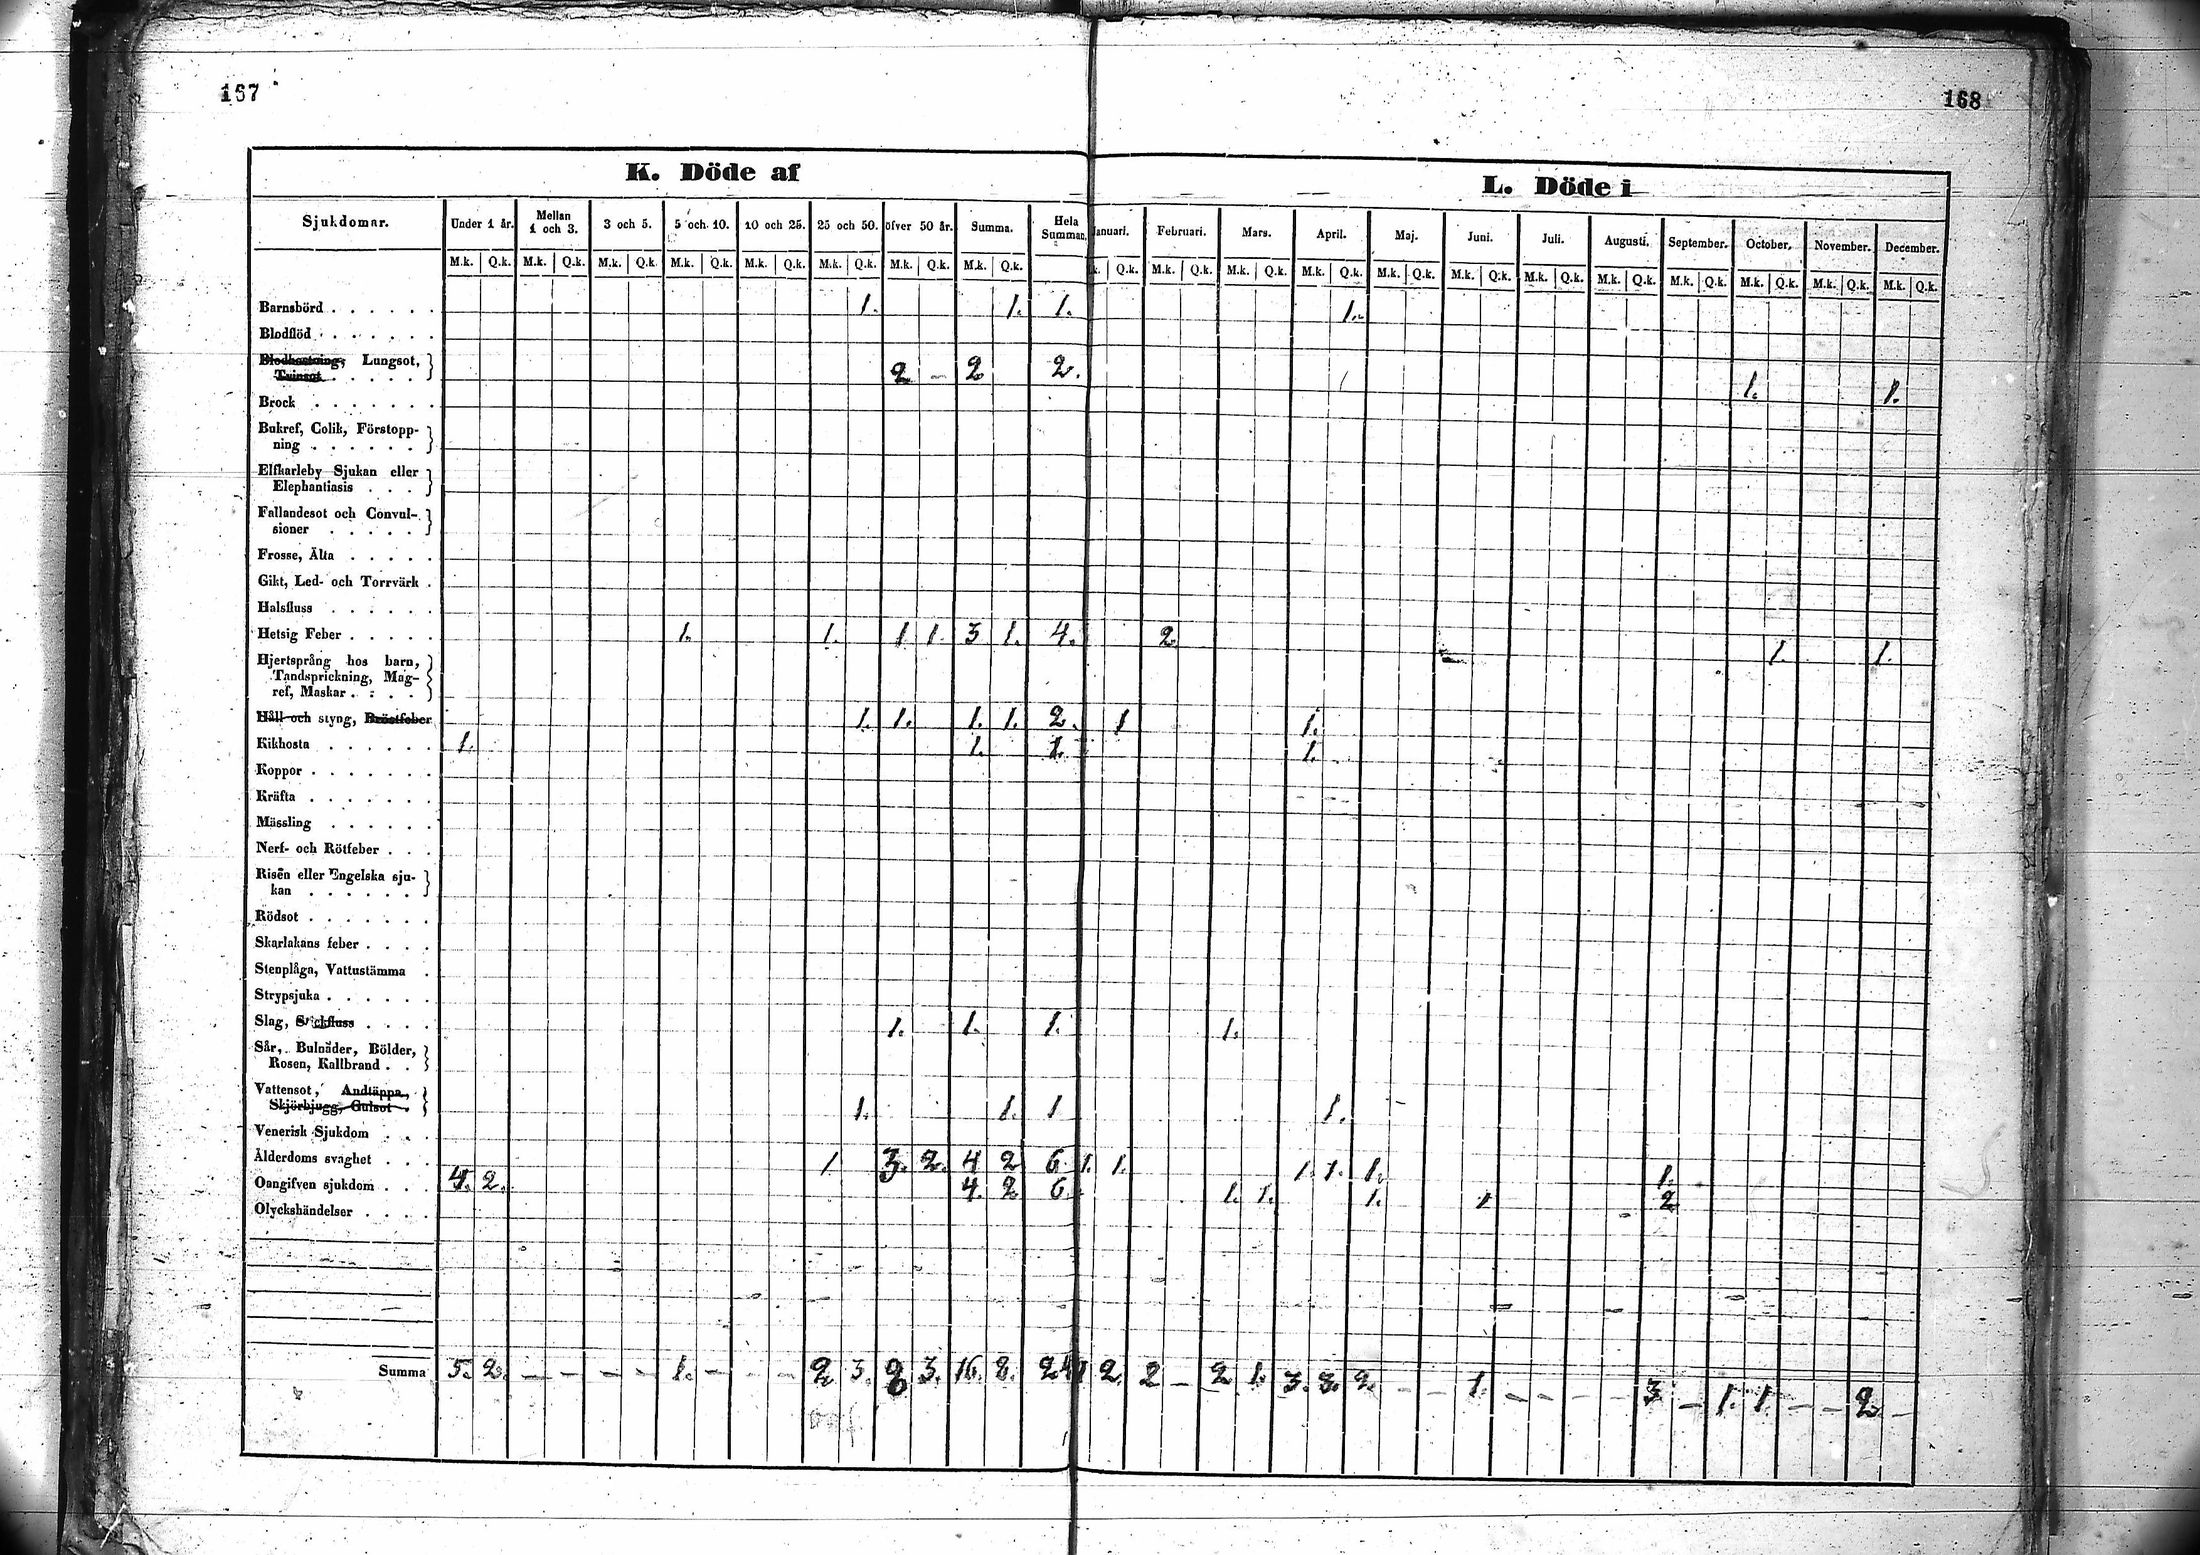 167
168
K. Döde af
L. Döde i
Sjukdomar. Under 1 år. Mellan 1 och 3. 3 och 5. 5 och 10. 10 och 25. 25 och 50. öfver 50 år. Summa. Hela Summan. Januari. Februari. Mars. April. Maj. Juni. Juli. Augusti. September. October. November. December.
M.k. Q.k. M.k. Q.k. M.k. Q.k. M.k. Q.k. M.k. Q.k. M.k. Q.k. M.k. Q.k. M.k. Q.k. k. Q.k. M.k. Q.k. M.k. Q.k. M.k. Q.k. M.k. Q.k. M.k. Q.k. M.k. Q.k. M.k. Q.k. M.k. Q.k. M.k. Q.k. M.k. Q.k. M.k. Q.k.
Barnsbörd . . . . . . 1. 1. 1. 1.
Blodflöd . . . . . .
Blodhostning, Lungsot,
Tvinsot . . . . . 2 - 2 2. 1. 1.
Brock . . . . . . .
Bukref, Colik, Förstopp-
ning . . . . . .
Elfkarleby Sjukan eller
Elephantiasis . . .
Fallandesot och Convul-
sioner . . . . .
Frosse, Älta . . . . .
Gikt, Led- och Torrvärk .
Halsfluss . . . . . .
Hetsig Feber . . . . . 1. 1. 1 1 3 1. 4. 2 1. 1.
Hjertsprång hos barn,
Tandsprickning, Mag-
ref, Maskar . . . .
Håll och styng, Bröstfeber 1. 1. 1. 1. 2. 1 1.
Kikhosta . . . . . . 1. 1. 1. 1.
Koppor . . . . . . .
Kräfta . . . . . . .
Mässling . . . . . .
Nerf- och Rötfeber . . .
Risen eller Engelska sju-
kan . . . . . .
Rödsot . . . . . . .
Skarlakans feber . . . .
Stenplåga, Vattustämma .
Strypsjuka . . . . . .
Slag, Stickfluss . . . . 1. 1. 1. 1.
Sår, Bulnader, Bölder,
Rosen, Kallbrand . .
Vattensot, Andtäppa,
Skjörbjugg, Gulsot . 1. 1. 1 1.
Venerisk Sjukdom . . .
Ålderdoms svaghet . . . 1 3. 2. 4 2 6 1. 1. 1. 1. 1. 1.
Oangifven sjukdom . . . 4. 2. 4. 2 6. 1. 1. 1. 1 2
Olyckshändelser . . . .
Summa 5. 2. - - - - 1. - - - 2 3. 8 3. 16. 8. 24 1 2. 2 - 2 1. 3. 3. 2. - 1. - - - - 3 - 1. 1. - - 2. -